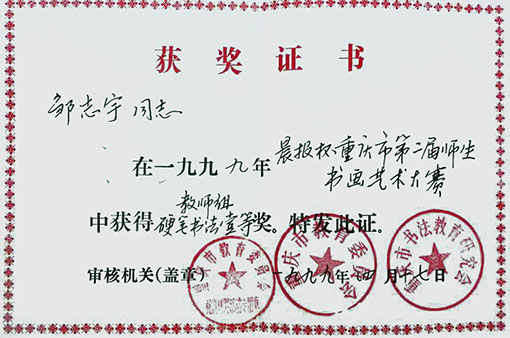 获奖证书
邹志宇 同志
在一九九九年晨报杯重庆市第二届师生
书画艺术大赛
教师组
中获得硬笔书法壹等奖。特发此证。
审核机关(盖章) 一九九九年四月十七日
重庆市教育委员会
重庆市教育委员会
重庆市书法教育研究会